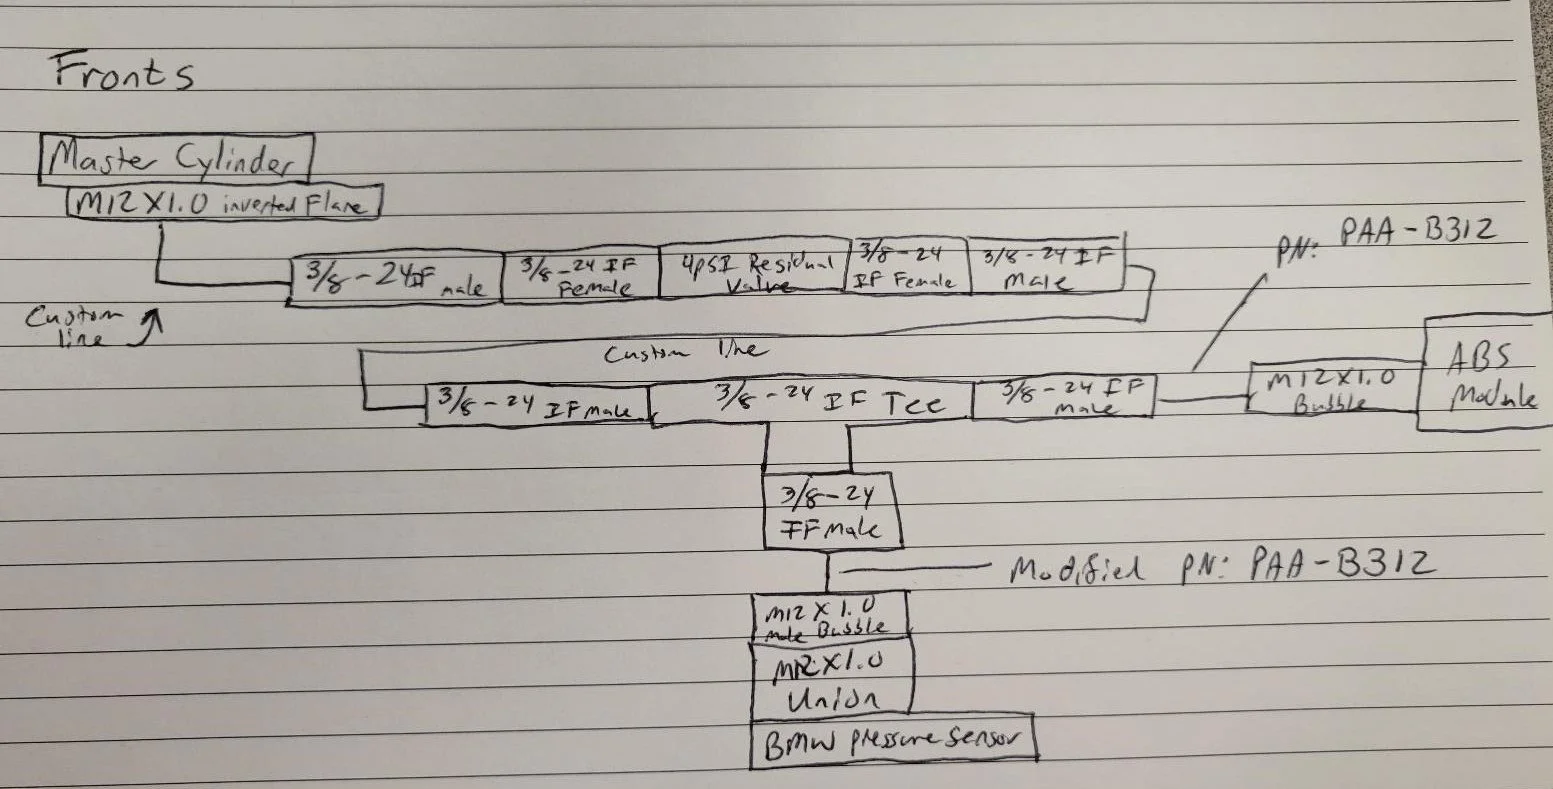 Fronts
Master Cylinder
M12X1.0 inverted Flare
3/8-24 IF male
3/8-24 IF
Female
4PSI Residual
Valve
3/8-24
IF Female
3/8-24 IF
Male
PN: PAA-B312
Custom
line
Custom line
3/8-24 IF male
3/8-24 IF Tee
3/8-24 IF
Male
M12X1.0
Bubble
ABS
Module
3/8-24
IF Male
Modified PN: PAA-B312
M12 X 1.0
male Bubble
M12X1.0
Union
BMW pressure sensor